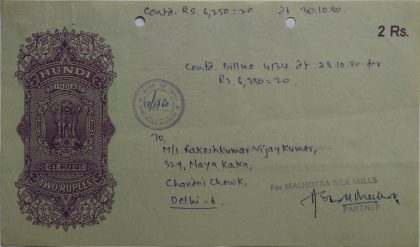 Contd. Rs. 6,250=20 dt 30.10.80.
2 Rs.
HUNDI
Contd Bill no 4134 dt 28.10.80 for
Rs 6,250=20
To,
M/s. Rakeshkumar Vijay Kumar,
529, Naya Katra,
Chandni Chowk,
Delhi - 6.
TWO RUPEES
For MALHOTRA SILK MILLS
PARTNER